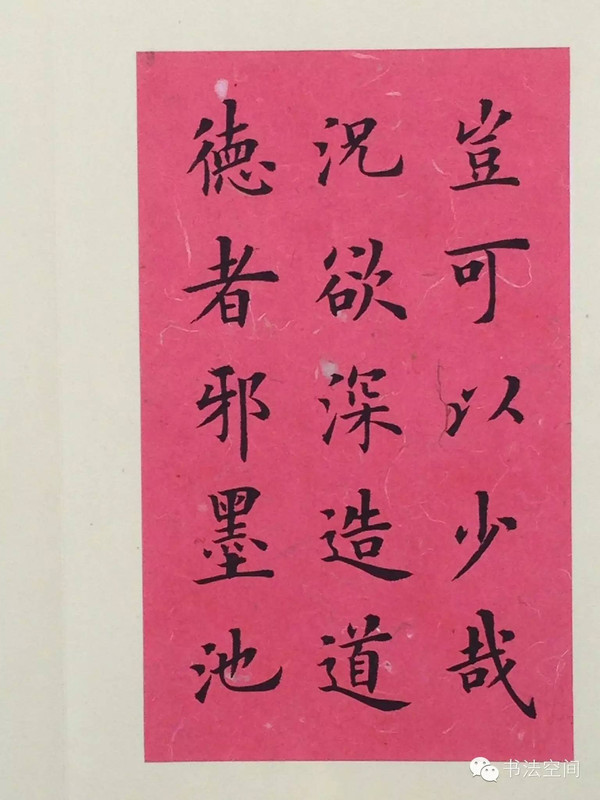 豈可以少哉
况欲深造道
德者邪墨池
书法空间